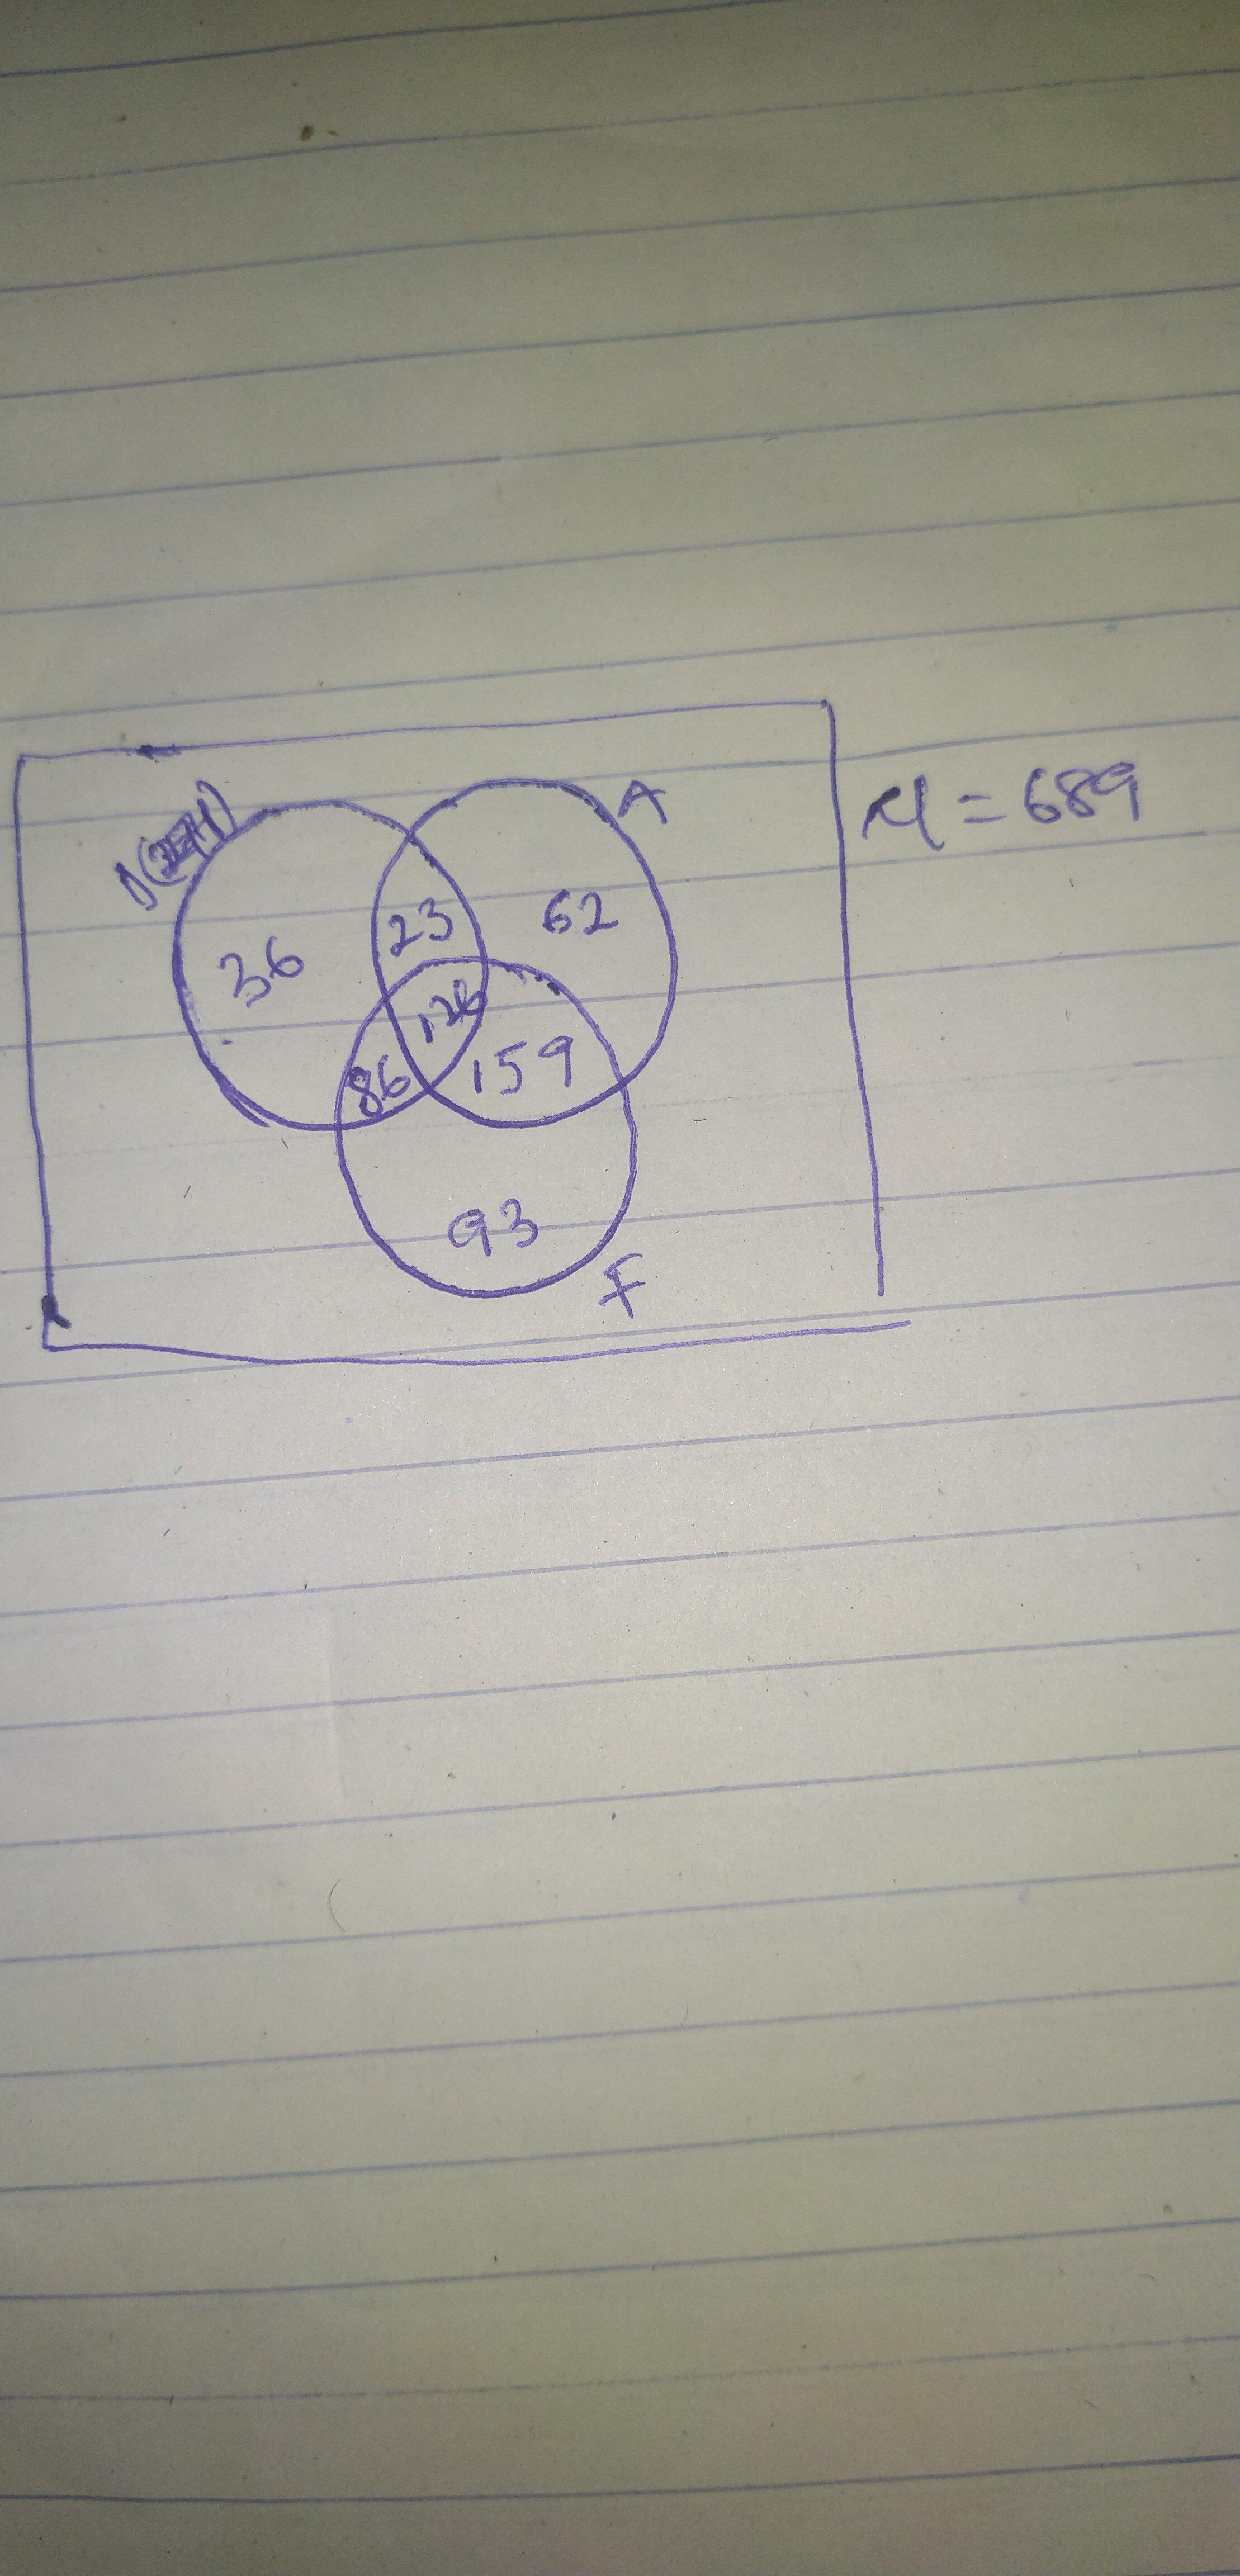 A
μ = 689
D
23
62
36
126
86
159
93
F